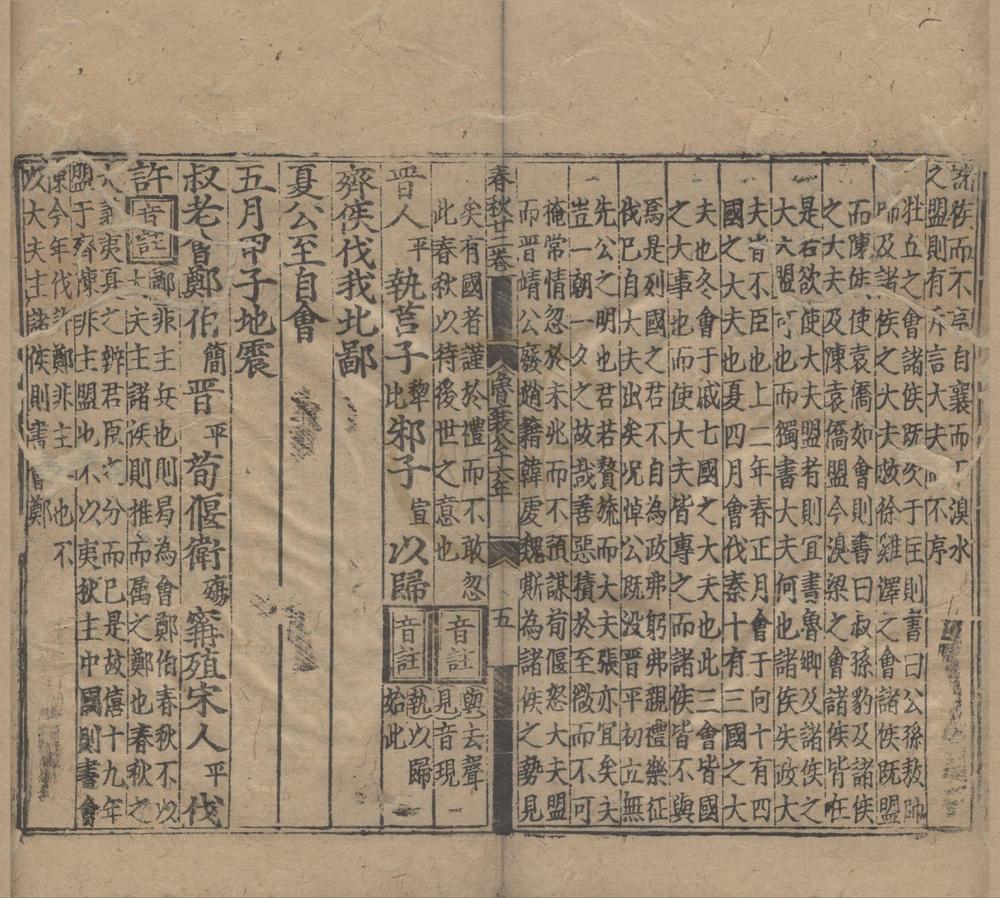 諸侯而不序自襄而下溴水
之盟則有斥言大夫而不序
牡丘之會諸侯既次于匡則書曰公孫敖帥
師及諸侯之大夫救徐雞澤之會諸侯既盟
而陳侯使袁僑如會則書曰叔孫豹及諸侯
之大夫及陳袁僑盟今溴梁之會諸侯皆在
是若欲使大夫盟者則宜書魯卿及諸侯之
大夫盟可也而獨書大夫何也諸侯失政大
夫皆不臣也上二年春正月會于向十有四
國之大夫也夏四月會伐秦十有三國之大
夫也冬會于戚七國之大夫也此三會皆國
之大事也而使大夫皆專之而諸侯皆不與
焉是列國之君不自為政弗躬弗親禮樂征
伐已自大夫出矣况悼公既没晋平初立無
先公之明也君若贅旒而大夫張亦宜矣夫
豈一朝一夕之故哉善惡積於至微而不可
掩常情忽於未兆而不預謀荀偃怒大夫盟
而晋靖公廢趙籍韓虔魏斯為諸侯之勢見
春秋廿二卷
魯襄公十六年
五
矣有國者謹於禮而不敢忽
此春秋以待後世之意也
音註
與去聲
見音現
晋人平執莒子犂比邾子宣以歸
音註
執以歸
始此
齊侯伐我北鄙
夏公至自會
五月甲子地震
叔老會鄭伯簡晋平荀偃衛殤甯殖宋人平伐
許
音註
鄭非主兵也則曷為會鄭伯春秋不以
大夫主諸侯則推而屬之鄭也春秋之
大義夷夏之辨君臣之分而已是故僖十九年
盟于齊陳非主盟也不以夷狄主中國則書會
陳今年伐許鄭非主也不
以大夫主諸侯則書會鄭